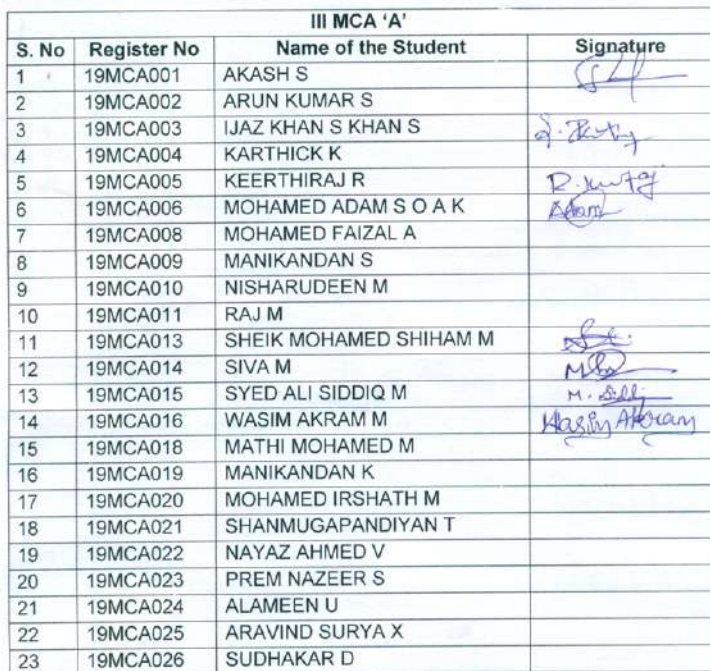 III MCA 'A'
S. No Register No Name of the Student Signature
1 19MCA001 AKASH S
2 19MCA002 ARUN KUMAR S
3 19MCA003 IJAZ KHAN S KHAN S
4 19MCA004 KARTHICK K
5 19MCA005 KEERTHIRAJ R
6 19MCA006 MOHAMED ADAM S O A K Adam
7 19MCA008 MOHAMED FAIZAL A
8 19MCA009 MANIKANDAN S
9 19MCA010 NISHARUDEEN M
10 19MCA011 RAJ M
11 19MCA013 SHEIK MOHAMED SHIHAM M
12 19MCA014 SIVA M
13 19MCA015 SYED ALI SIDDIQ M
14 19MCA016 WASIM AKRAM M Wasim Akram
15 19MCA018 MATHI MOHAMED M
16 19MCA019 MANIKANDAN K
17 19MCA020 MOHAMED IRSHATH M
18 19MCA021 SHANMUGAPANDIYAN T
19 19MCA022 NAYAZ AHMED V
20 19MCA023 PREM NAZEER S
21 19MCA024 ALAMEEN U
22 19MCA025 ARAVIND SURYA X
23 19MCA026 SUDHAKAR D